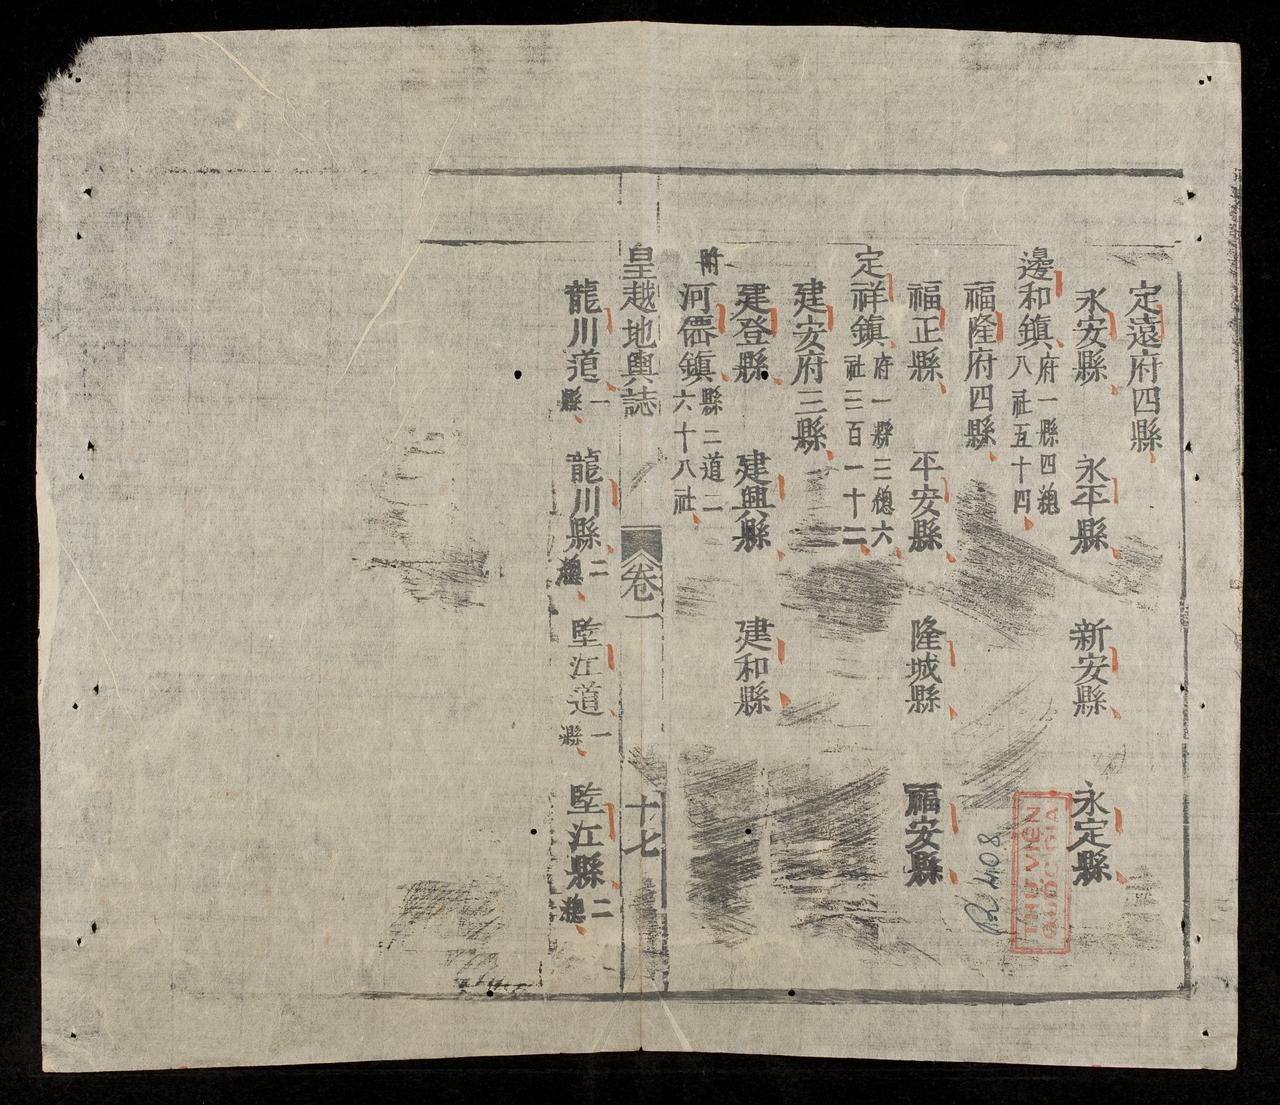 定遠府四縣
永安縣 永平縣 新安縣 永定縣
邊和鎮 府一縣四總八社五十四
福隆府四縣
福正縣 平安縣 隆城縣 福安縣
定祥鎮 府一縣三總六社三百一十二
建安府三縣
建登縣 建興縣 建和縣
附河僊鎮 縣二道二六十八社
皇越地輿誌 卷一 十七
龍川道 一縣 龍川縣 二總 堅江道 一縣 堅江縣 二總
THƯ VIỆN
QUỐC GIA